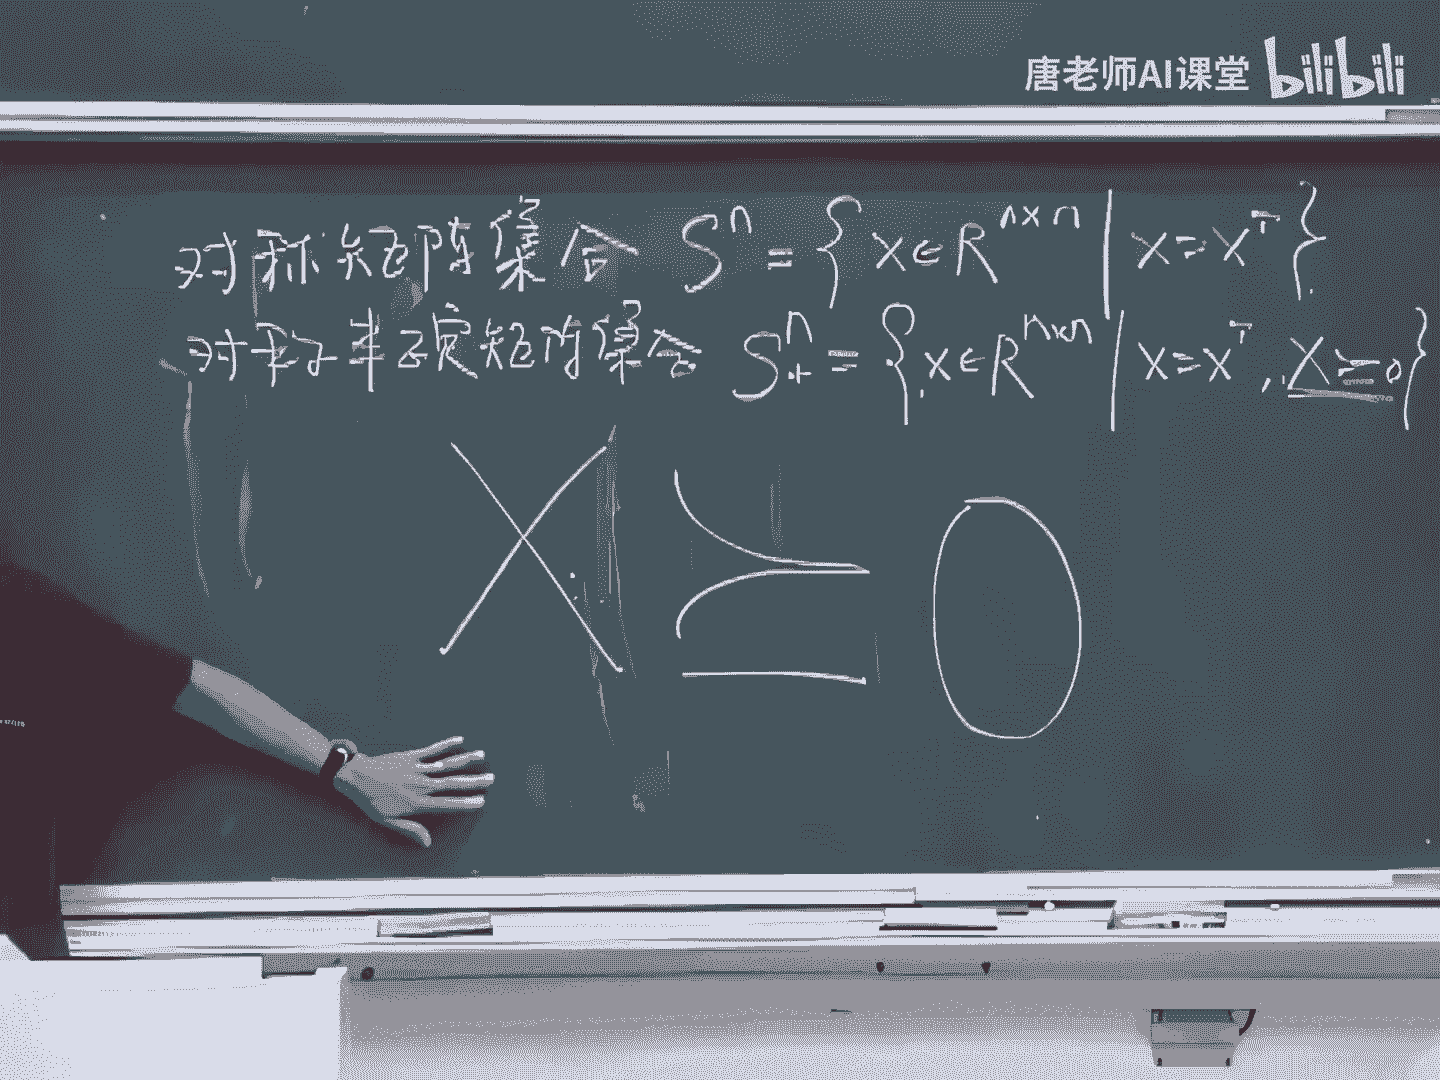 唐老师AI课堂 bilibili
对称矩阵集合 Sⁿ = { X ∈ Rⁿˣⁿ | X = Xᵀ }
对称半正定矩阵集合 Sⁿ₊ = { X ∈ Rⁿˣⁿ | X = Xᵀ, X ⪰ 0 }
X ⪰ 0